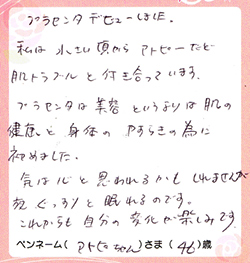 プラセンタデビューしました。
私は小さい頃からアトピーなど
肌トラブルと付き合っています。
プラセンタは美容というよりは肌の
健康と身体のやすらぎの為に
初めました。
気は心と思われるかもしれませんが
ぐっすりと眠れるのです。
これからも自分の変化が楽しみです
ペンネーム(アトピーちゃん)さま(46)歳